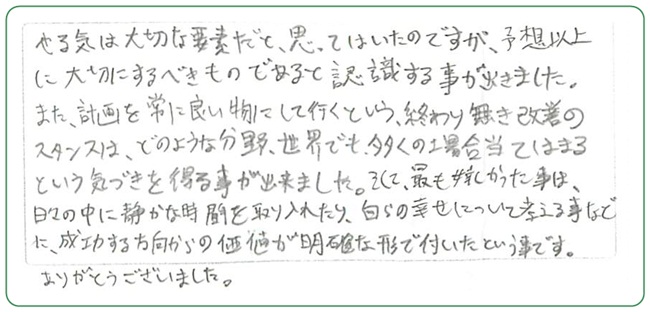 やる気は大切な要素だと、思ってはいたのですが、予想以上
に大切にするべきものであると認識する事が出きました。
また、計画を常に良い物にして行くという、終わり無き改善の
スタンスは、どのような分野、世界でも、多くの場合当てはまる
という気づきを得る事が出来ました。そして、最も嬉しかった事は、
日々の中に静かな時間を取り入れたり、自らの幸せについて考える事など
に、成功する方向からの価値が明確な形で付いたという事です。
ありがとうございました。